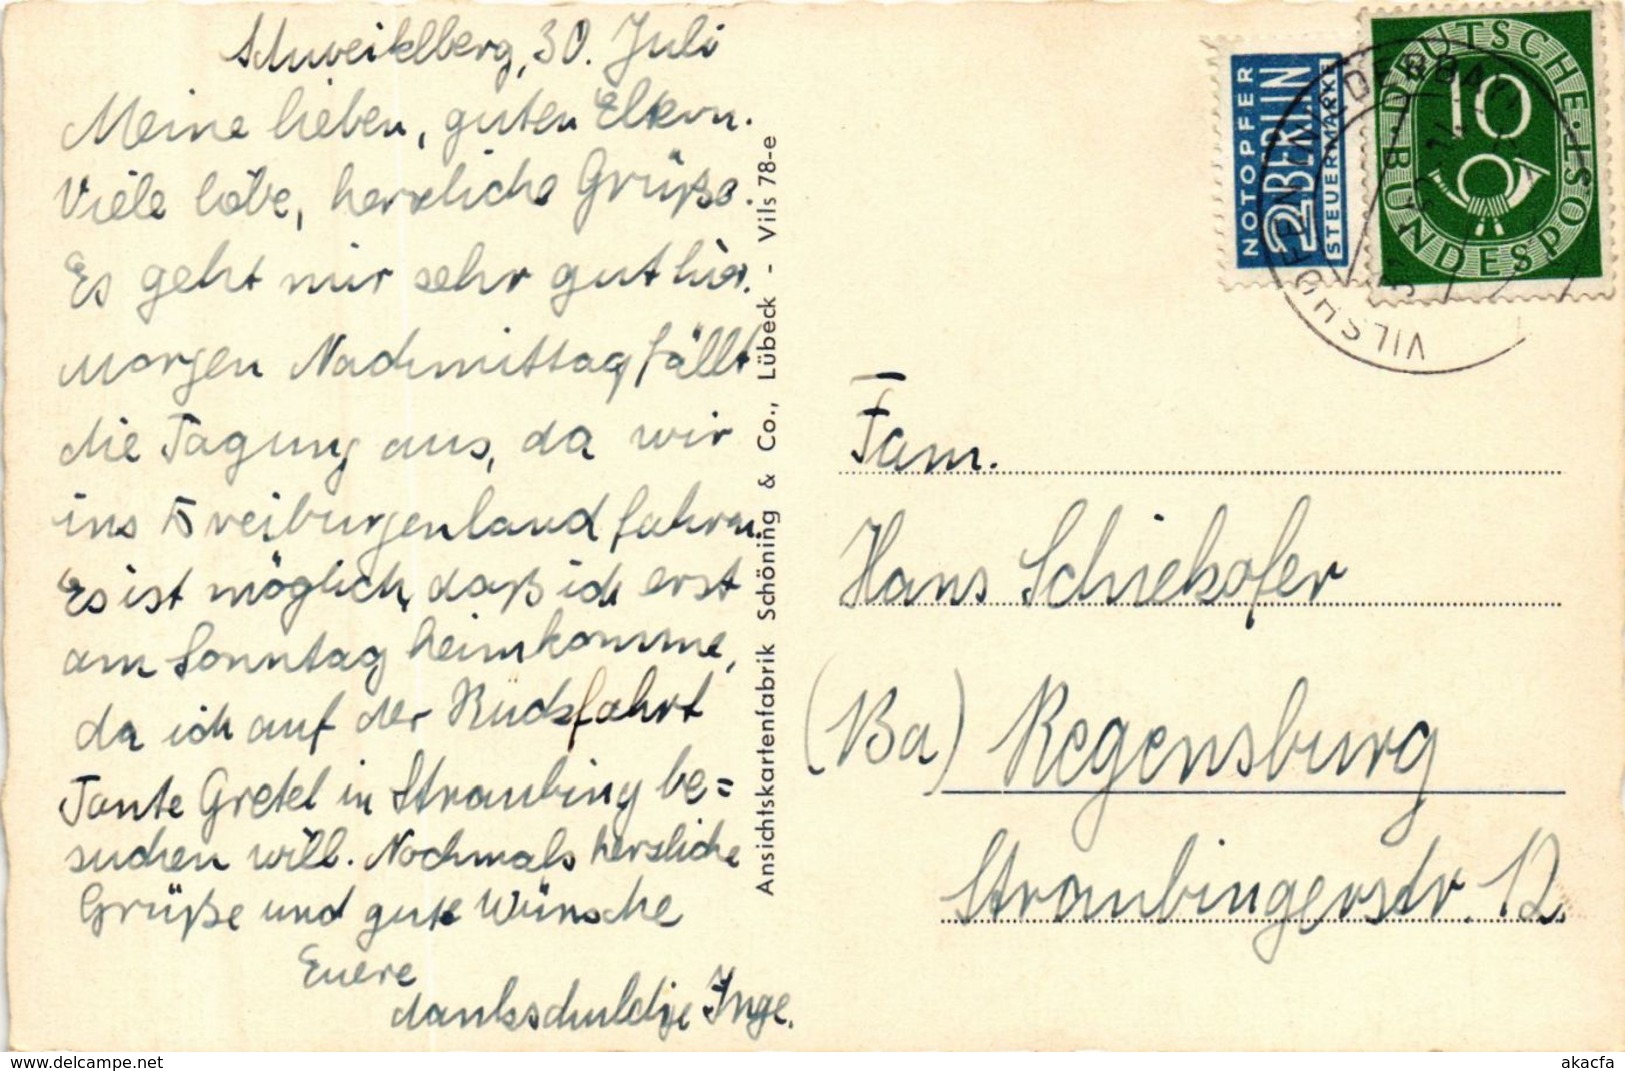 Schweiklberg, 30. Juli
Meine lieben, guten Eltern.
Viele liebe, herzliche Grüße.
Es geht mir sehr gut hier.
morgen Nachmittag fällt
die Tagung aus, da wir
ins Dreiburgenland fahren.
Es ist möglich, daß ich erst
am Sonntag heimkomme,
da ich auf der Rückfahrt
Tante Gretel in Straubing be=
suchen will. Nochmals herzliche
Grüße und gute Wünsche
Euere
dankschuldige Inge.
Ansichtskartenfabrik Schöning & Co., Lübeck - Vils 78-e
NOTOPFER
2 BERLIN
STEUERMARKE
DEUTSCHE BUNDESPOST
10
VILSHOFEN
Fam.
Hans Schiekofer
(Ba) Regensburg
Straubingerstr. 12.
akacfa
www.delcampe.net